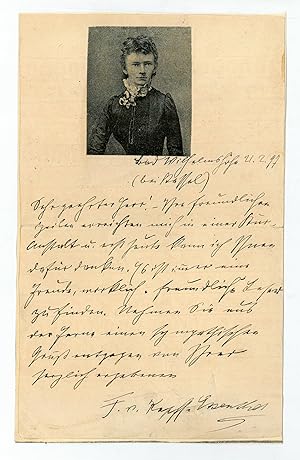 Bad Wilhelmshöhe 21.2.99
(bei Kassel)
Sehr geehrter Herr! Ihre freundlichen
Zeilen erreichten mich in einer Kur-
Anstalt u. erst heute kann ich Ihnen
dafür danken. Es ist immer eine
Freude, wirklich freundliche Leser
zu finden. Nehmen Sie aus
der Ferne einen sympathischen
Gruß entgegen von Ihrer
herzlich ergebenen
F. v.